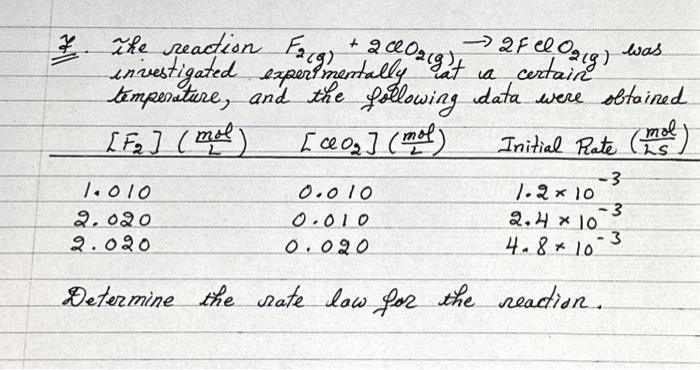 7. The reaction F₂(g) + 2ClO₂(g) → 2FClO₂(g) was
investigated experimentally at a certain
temperature, and the following data were obtained
[F₂] (mol/L) [ClO₂] (mol/L) Initial Rate (mol/Ls)
1.010 0.010 1.2 × 10⁻³
2.020 0.010 2.4 × 10⁻³
2.020 0.020 4.8 × 10⁻³
Determine the rate law for the reaction.